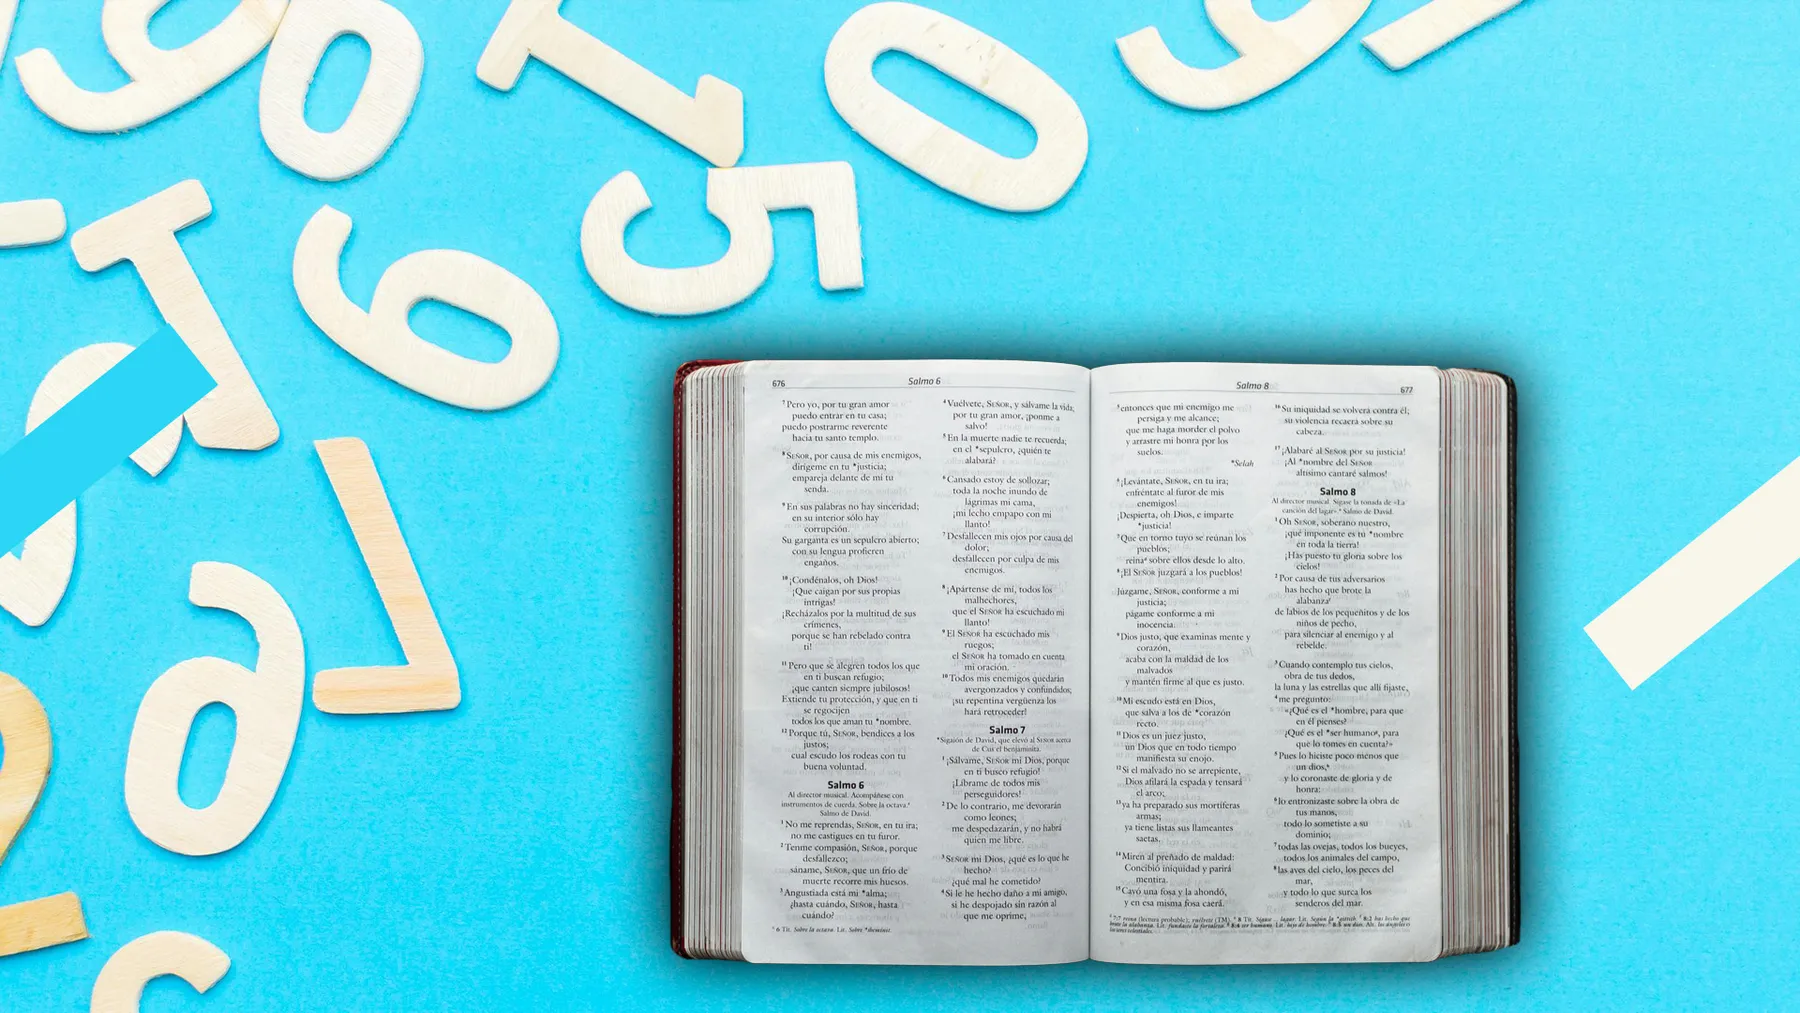 676
Salmo 6
7 Pero yo, por tu gran amor
puedo entrar en tu casa;
puedo postrarme reverente
hacia tu santo templo.
8 SEÑOR, por causa de mis enemigos,
dirígeme en tu *justicia;
empareja delante de mí tu
senda.
9 En sus palabras no hay sinceridad;
en su interior sólo hay
corrupción.
Su garganta es un sepulcro abierto;
con su lengua profieren
engaños.
10 ¡Condénalos, oh Dios!
¡Que caigan por sus propias
intrigas!
¡Recházalos por la multitud de sus
crímenes,
porque se han rebelado contra
ti!
11 Pero que se alegren todos los que
en ti buscan refugio;
¡que canten siempre jubilosos!
Extiende tu protección, y que en ti
se regocijen
todos los que aman tu *nombre.
12 Porque tú, SEÑOR, bendices a los
justos;
cual escudo los rodeas con tu
buena voluntad.
Salmo 6
Al director musical. Acompáñese con
instrumentos de cuerda. Sobre la octava.*
Salmo de David.
1 No me reprendas, SEÑOR, en tu ira;
no me castigues en tu furor.
2 Tenme compasión, SEÑOR, porque
desfallezco;
sáname, SEÑOR, que un frío de
muerte recorre mis huesos.
3 Angustiada está mi *alma;
¿hasta cuándo, SEÑOR, hasta
cuándo?
* 6 Tít. Sobre la octava. Lit. Sobre *sheminit.
4 Vuélvete, SEÑOR, y sálvame la vida;
por tu gran amor, ¡ponme a
salvo!
5 En la muerte nadie te recuerda;
en el *sepulcro, ¿quién te
alabará?
6 Cansado estoy de sollozar;
toda la noche inundo de
lágrimas mi cama,
¡mi lecho empapo con mi
llanto!
7 Desfallecen mis ojos por causa del
dolor;
desfallecen por culpa de mis
enemigos.
8 ¡Apártense de mí, todos los
malhechores,
que el SEÑOR ha escuchado mi
llanto!
9 El SEÑOR ha escuchado mis
ruegos;
el SEÑOR ha tomado en cuenta
mi oración.
10 Todos mis enemigos quedarán
avergonzados y confundidos;
¡su repentina vergüenza los
hará retroceder!
Salmo 7
*Sigaión de David, que elevó al SEÑOR acerca
de Cus el benjaminita.
1 ¡Sálvame, SEÑOR mi Dios, porque
en ti busco refugio!
¡Líbrame de todos mis
perseguidores!
2 De lo contrario, me devorarán
como leones;
me despedazarán, y no habrá
quien me libre.
3 SEÑOR mi Dios, ¿qué es lo que he
hecho?
¿qué mal he cometido?
4 Si le he hecho daño a mi amigo,
si he despojado sin razón al
que me oprime,
Salmo 8
677
5 entonces que mi enemigo me
persiga y me alcance;
que me haga morder el polvo
y arrastre mi honra por los
suelos.
*Selah
6 ¡Levántate, SEÑOR, en tu ira;
enfréntate al furor de mis
enemigos!
¡Despierta, oh Dios, e imparte
*justicia!
7 Que en torno tuyo se reúnan los
pueblos;
reina* sobre ellos desde lo alto.
8 ¡El SEÑOR juzgará a los pueblos!
Júzgame, SEÑOR, conforme a mi
justicia;
págame conforme a mi
inocencia.
9 Dios justo, que examinas mente y
corazón,
acaba con la maldad de los
malvados
y mantén firme al que es justo.
10 Mi escudo está en Dios,
que salva a los de *corazón
recto.
11 Dios es un juez justo,
un Dios que en todo tiempo
manifiesta su enojo.
12 Si el malvado no se arrepiente,
Dios afilará la espada y tensará
el arco;
13 ya ha preparado sus mortíferas
armas;
ya tiene listas sus llameantes
saetas.
14 Miren al preñado de maldad:
Concibió iniquidad y parirá
mentira.
15 Cavó una fosa y la ahondó,
y en esa misma fosa caerá.
16 Su iniquidad se volverá contra él;
su violencia recaerá sobre su
cabeza.
17 ¡Alabaré al SEÑOR por su justicia!
¡Al *nombre del SEÑOR
altísimo cantaré salmos!
Salmo 8
Al director musical. Sígase la tonada de «La
canción del lagar».* Salmo de David.
1 Oh SEÑOR, soberano nuestro,
¡qué imponente es tu *nombre
en toda la tierra!
¡Has puesto tu gloria sobre los
cielos!
2 Por causa de tus adversarios
has hecho que brote la
alabanza
de labios de los pequeñitos y de los
niños de pecho,
para silenciar al enemigo y al
rebelde.
3 Cuando contemplo tus cielos,
obra de tus dedos,
la luna y las estrellas que allí fijaste,
4 me pregunto:
«¿Qué es el *hombre, para que
en él pienses?
¿Qué es el *ser humano, para
que lo tomes en cuenta?»
5 Pues lo hiciste poco menos que
un dios,
y lo coronaste de gloria y de
honra:
6 lo entronizaste sobre la obra de
tus manos,
todo lo sometiste a su
dominio;
7 todas las ovejas, todos los bueyes,
todos los animales del campo,
8 las aves del cielo, los peces del
mar,
y todo lo que surca los
senderos del mar.